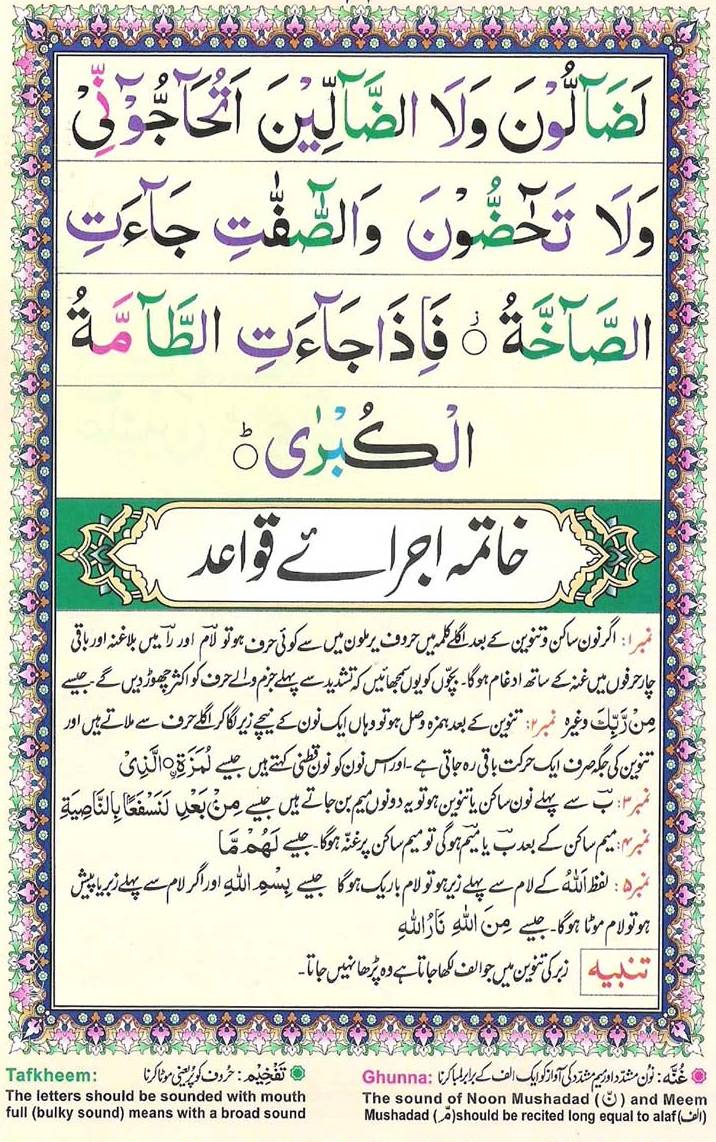 لَضَآلُّوْنَ وَلَا الضَّآلِّيْنَ اَتُحَآجُّوْٓنِّيْ
وَلَا تَحٰٓضُّوْنَ وَالصّٰٓفّٰتِ جَآءَتِ
الصَّآخَّةُ ۞ فَاِذَا جَآءَتِ الطَّآمَّةُ
الْكُبْرٰى ۞
خاتمہ اجرائے قواعد
نمبر۱: اگر نون ساکن و تنوین کے بعد اگلے کلمہ میں حروف یرملون میں سے کوئی حرف ہو تو لام اور را میں بلاغنہ اور باقی
چار حرفوں میں غنہ کے ساتھ ادغام ہوگا۔ بچوں کو یوں سمجھائیں کہ تشدید سے پہلے جزم والے حرف کو اکثر چھوڑ دیں گے۔ جیسے
مِنْ رَّبِّكَ وغیرہ نمبر۲: تنوین کے بعد ہمزہ وصل ہو تو وہاں ایک نون کے نیچے زیر لگا کر اگلے حرف سے ملاتے ہیں اور
تنوین کی جگہ صرف ایک حرکت باقی رہ جاتی ہے۔ اور اس نون کو نون قطنی کہتے ہیں جیسے لُمَزَةِ نِ الَّذِىْ
نمبر۳: ب سے پہلے نون ساکن یا تنوین ہو تو یہ دونوں میم بن جاتے ہیں جیسے مِنْۢ بَعْدِ لَنَسْفَعًۢا بِالنَّاصِيَةِ
نمبر۴: میم ساکن کے بعد ب یا میم ہوگی تو میم ساکن پر غنہ ہوگا۔ جیسے لَهُمْ مَّا
نمبر۵: لفظ اَللهُ کے لام سے پہلے زیر ہو تو لام باریک ہوگا جیسے بِسْمِ اللهِ اور اگر لام سے پہلے زبر یا پیش
ہو تو لام موٹا ہوگا۔ جیسے مِنَ اللهِ نَارُ اللهِ
تنبیہ زبر کی تنوین میں جو الف لکھا جاتا ہے وہ پڑھا نہیں جاتا۔
غُنَّہ: نون مشدد اور میم مشدد کی آواز کو ایک الف کے برابر لمبا کرنا
Ghunna:
The sound of Noon Mushadad (نّ) and Meem
Mushadad (مّ) should be recited long equal to alaf (الف)
تَفْخِیْم: حروف کو پُر یعنی موٹا کرنا
Tafkheem:
The letters should be sounded with mouth
full (bulky sound) means with a broad sound